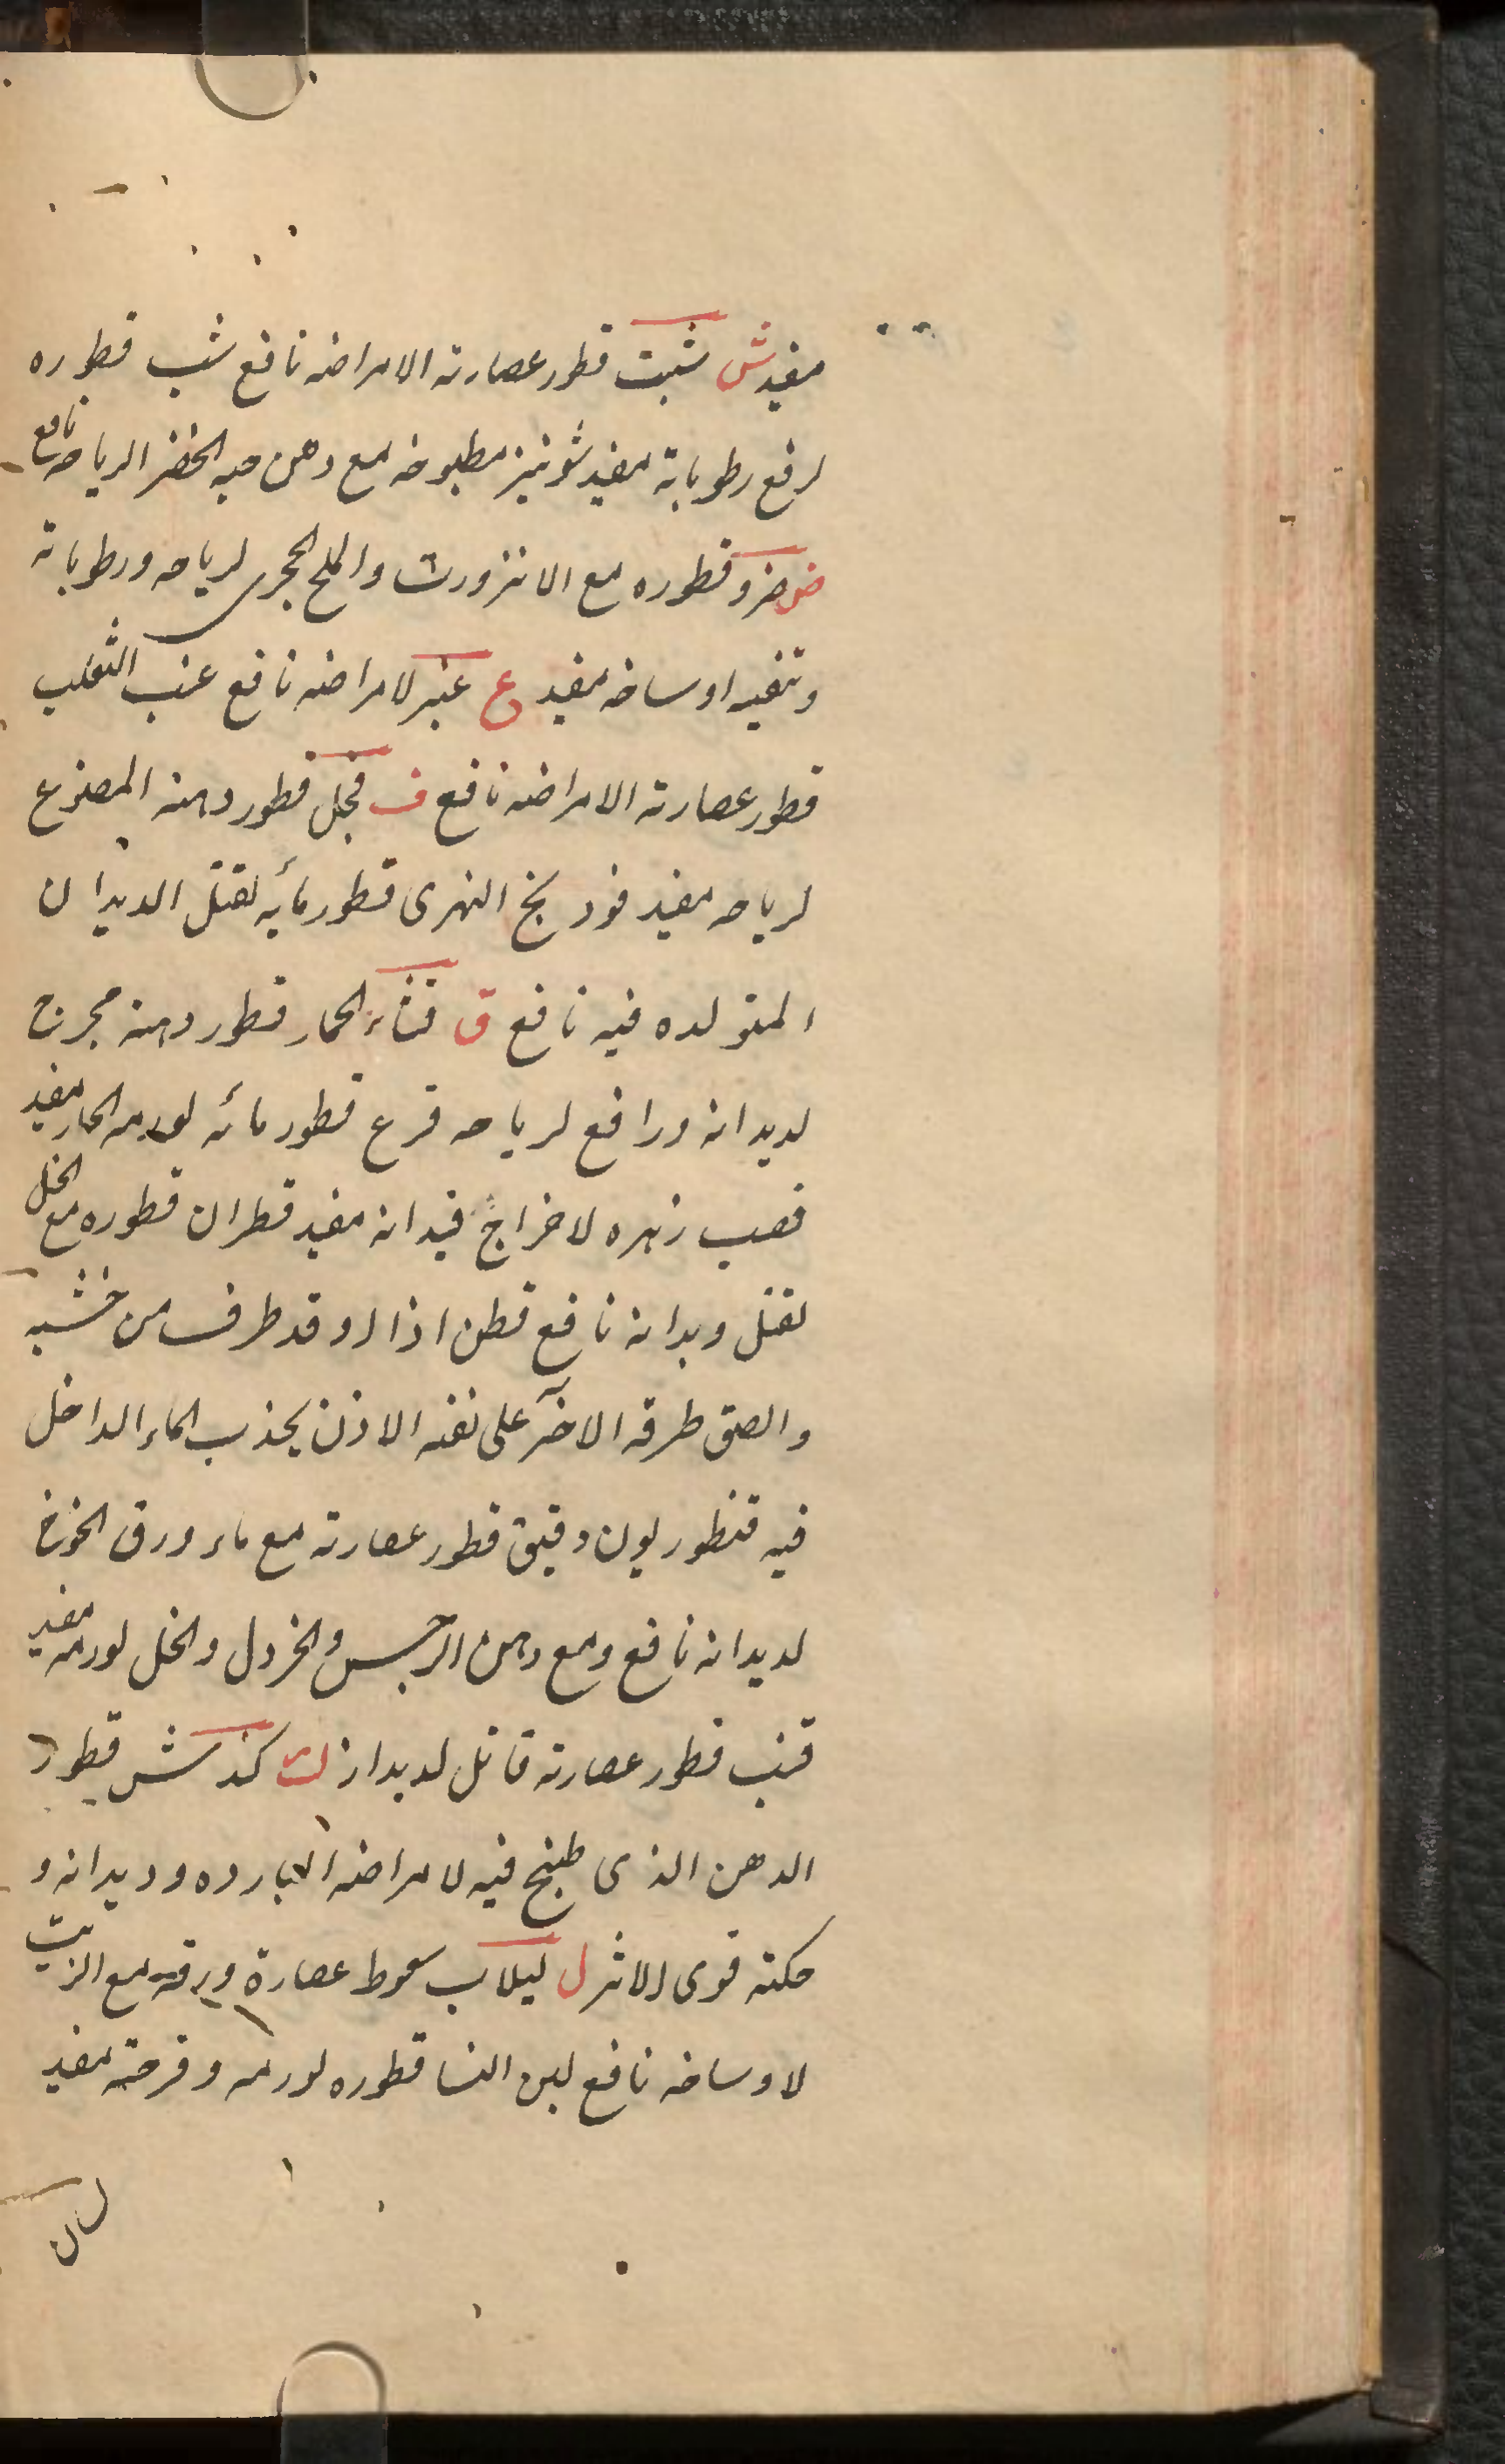 مفيد ش شبت قطور عصارته الامراضه نافع شب قطوره
لرفع رطوباته مفيد شونيز مطبوخه مع دهن حبه الخضر الرياحه نافع
ض ضرو قطوره مع الانزروت والملح الحجرى لرياحه ورطوباته
وتنقيه اوساخه مفيد ع عنبر لامراضه نافع عنب الثعلب
قطور عصارته الامراضه نافع ف فجل قطور دهنه المصنوع
لرياحه مفيد فودنج النهرى قطور مائه لقتل الديدان
المتولده فيه نافع ق قثاء الحمار قطور دهنه مجرج
لديدانه ورافع لرياحه قرع قطور مائه لورمه الحار مفيد
قصب زهره لاخراج ديدانه مفيد قطران قطوره مع الخل
لقتل ديدانه نافع قطن اذا اوقد طرف من خشبه
والصق طرفه الآخر على ثقبه الاذن يجذب الماء الداخل
فيه قنطوريون دقيق قطور عصارته مع ماء ورق الخوخ
لديدانه نافع ومع دهن النرجس والخردل والخل لورمه مفيد
قنب قطور عصارته قاتل لديدانه ك كندش قطور
الدهن الذى طبخ فيه لامراضه البارده وديدانه و
حكته قوى الاثر ل لبلاب سعوط عصارة ورقه مع الزيت
لاوساخه نافع لبن النسا قطوره لورمه وقرحته مفيد